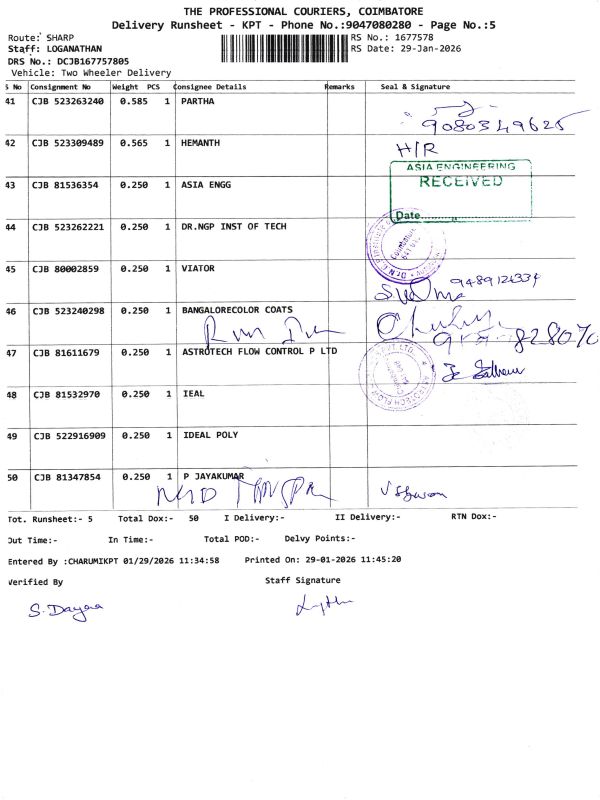 THE PROFESSIONAL COURIERS, COIMBATORE
Delivery Runsheet - KPT - Phone No.:9047080280 - Page No.:5
Route: SHARP
RS No.: 1677578
Staff: LOGANATHAN
RS Date: 29-Jan-2026
DRS No.: DCJB167757805
Vehicle: Two Wheeler Delivery
S No Consignment No Weight PCS Consignee Details Remarks Seal & Signature
41 CJB 523263240 0.585 1 PARTHA
42 CJB 523309489 0.565 1 HEMANTH H/R
ASIA ENGINEERING
RECEIVED
Date
43 CJB 81536354 0.250 1 ASIA ENGG
44 CJB 523262221 0.250 1 DR.NGP INST OF TECH
45 CJB 80002859 0.250 1 VIATOR
46 CJB 523240298 0.250 1 BANGALORECOLOR COATS
47 CJB 81611679 0.250 1 ASTROTECH FLOW CONTROL P LTD
48 CJB 81532970 0.250 1 IEAL
49 CJB 522916909 0.250 1 IDEAL POLY
50 CJB 81347854 0.250 1 P JAYAKUMAR
Tot. Runsheet:- 5 Total Dox:- 50 I Delivery:- II Delivery:- RTN Dox:-
Out Time:- In Time:- Total POD:- Delvy Points:-
Entered By :CHARUMIKPT 01/29/2026 11:34:58 Printed On: 29-01-2026 11:45:20
Verified By Staff Signature